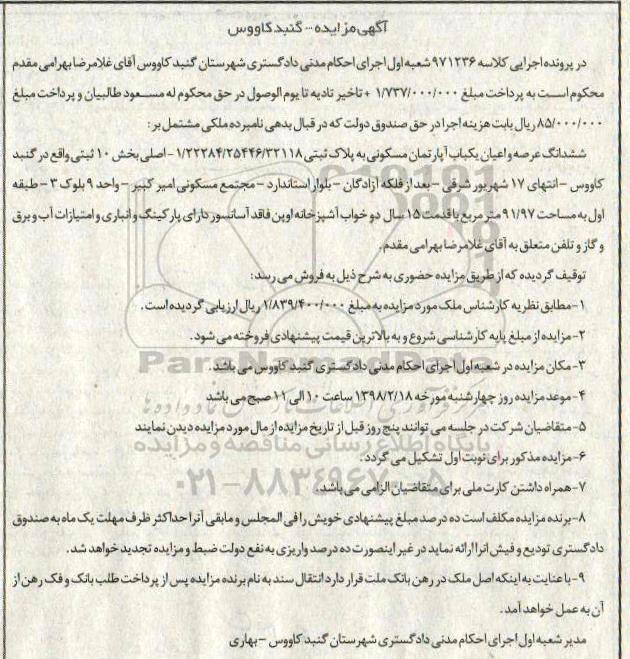 آگهی مزایده... گنبدکاووس
در پرونده اجرایی کلاسه ۹۷۱۲۳۶ شعبه اول اجرای احکام مدنی دادگستری شهرستان گنبد کاووس آقای غلامرضا بهرامی مقدم
محکوم است به پرداخت مبلغ ۱/۷۳۷/۰۰۰/۰۰۰ + تاخیر تادیه تا یوم الوصول در حق محکوم له مسعود طالبیان و پرداخت مبلغ
۸۵/۰۰۰/۰۰۰ ریال بابت هزینه اجرا در حق صندوق دولت که در قبال بدهی نامبرده ملکی مشتمل بر:
ششدانگ عرصه و اعیان یکباب آپارتمان مسکونی به پلاک ثبتی ۱/۲۲۲۸۴/۲۵۴۴۶/۳۲۱۱۸ - اصلی بخش ۱۰ ثبتی واقع در گنبد
کاووس - انتهای ۱۷ شهریور شرقی - بعد از فلکه آزادگان - بلوار استاندارد - مجتمع مسکونی امیر کبیر - واحد ۹ بلوک ۳ - طبقه
اول به مساحت ۹۱/۹۷ متر مربع با قدمت ۱۵ سال دو خواب آشپزخانه اوپن فاقد آسانسور دارای پارکینگ و انباری و امتیازات آب و برق
و گاز و تلفن متعلق به آقای غلامرضا بهرامی مقدم.
توقیف گردیده که از طریق مزایده حضوری به شرح ذیل به فروش می رسد:
۱- مطابق نظریه کارشناس ملک مورد مزایده به مبلغ ۱/۸۳۹/۴۰۰/۰۰۰ ریال ارزیابی گردیده است.
۲- مزایده از مبلغ پایه کارشناسی شروع و به بالاترین قیمت پیشنهادی فروخته می شود.
۳- مکان مزایده در شعبه اول اجرای احکام مدنی دادگستری گنبد کاووس می باشد.
ParsNamadData
۴- موعد مزایده روز چهارشنبه مورخه ۱۳۹۸/۲/۱۸ ساعت ۱۰ الی ۱۱ صبح می باشد
۵- متقاضیان شرکت در جلسه می توانند پنج روز قبل از تاریخ مزایده از مال مورد مزایده دیدن نمایند
پایگاه اطلاع رسانی مناقصه و مزایده
۶- مزایده مذکور برای نوبت اول تشکیل می گردد.
۷- همراه داشتن کارت ملی برای متقاضیان الزامی می باشد.
۰۲۱-۸۸۳۴۹۶۷۰-۵
۸- برنده مزایده مکلف است ده درصد مبلغ پیشنهادی خویش را فی المجلس و مابقی آنرا حداکثر ظرف مهلت یک ماه به صندوق
دادگستری تودیع و فیش انرا ارائه نماید در غیر اینصورت ده درصد واریزی به نفع دولت ضبط و مزایده تجدید خواهد شد.
۹- با عنایت به اینکه اصل ملک در رهن بانک ملت قرار دارد انتقال سند به نام برنده مزایده پس از پرداخت طلب بانک و فک رهن از
آن به عمل خواهد آمد.
مدیر شعبه اول اجرای احکام مدنی دادگستری شهرستان گنبد کاووس - بهاری